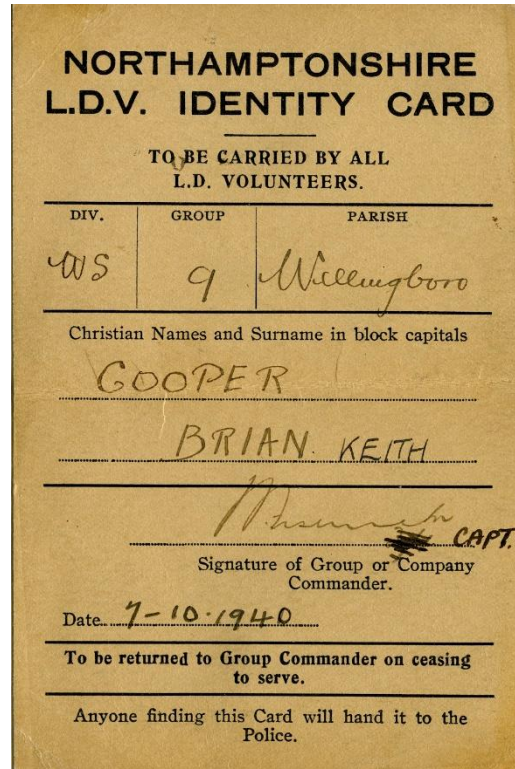 NORTHAMPTONSHIRE
L.D.V. IDENTITY CARD
TO BE CARRIED BY ALL
L.D. VOLUNTEERS.
DIV. GROUP PARISH
WS 9 Willingboro
Christian Names and Surname in block capitals
COOPER
BRIAN. KEITH
CAPT.
Signature of Group or Company
Commander.
Date 7-10-1940
To be returned to Group Commander on ceasing
to serve.
Anyone finding this Card will hand it to the
Police.